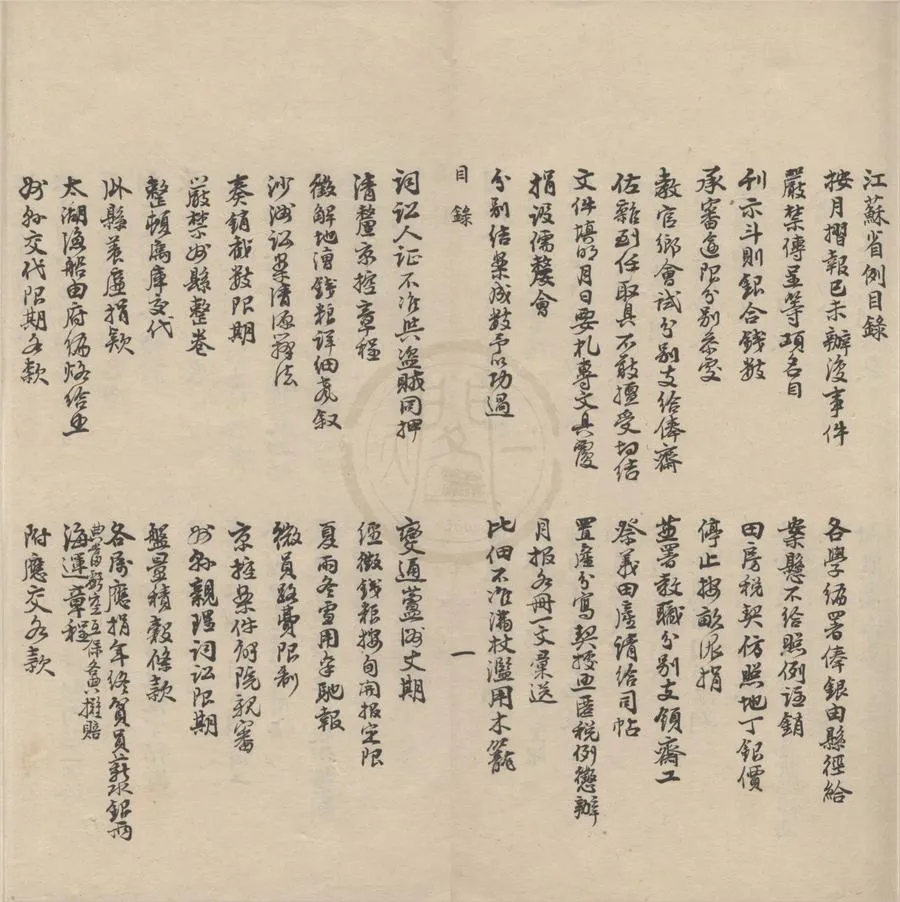 江蘇省例目錄
按月摺報已未辦浚事件
各學偏署俸銀由縣徑給
嚴禁傳呈等項名目
案懸不給照例註銷
刊示斗則銀合錢數
田房稅契仿照地丁銀價
承審逾限分別叅處
停止按畝派捐
教官鄉會試分別支給俸齋
兼署教職分別支領齋工
佐雜到任取具不敢擅受切結
祭義田產請給司帖
文件填明月日要札專文具覆
置產分寫契據照匿稅例懲辦
捐設儒嫠會
月報各冊一文彙送
分別結案成數予以功過
比佃不准滿杖濫用木籠
目錄
一
詞訟人证不准與盜賊同押
變通蘆洲丈期
清釐京控章程
經徵錢糧按旬開報定限
徵解地漕錢糧詳細竟叙
夏雨冬雪用傘馳報
沙洲訟案清源釋法
微員路費限制
奏銷截數限期
京控案件解院親審
嚴禁州縣整卷
州縣親理詞訟限期
整頓馬庫交代
盤量積穀條款
州縣養廉捐款
各屬應捐年終貿員薪水銀兩
典當弊產互保各典攤賠
太湖漁船由府編烙給照
海運章程
州縣交代限期各款
附應交各款